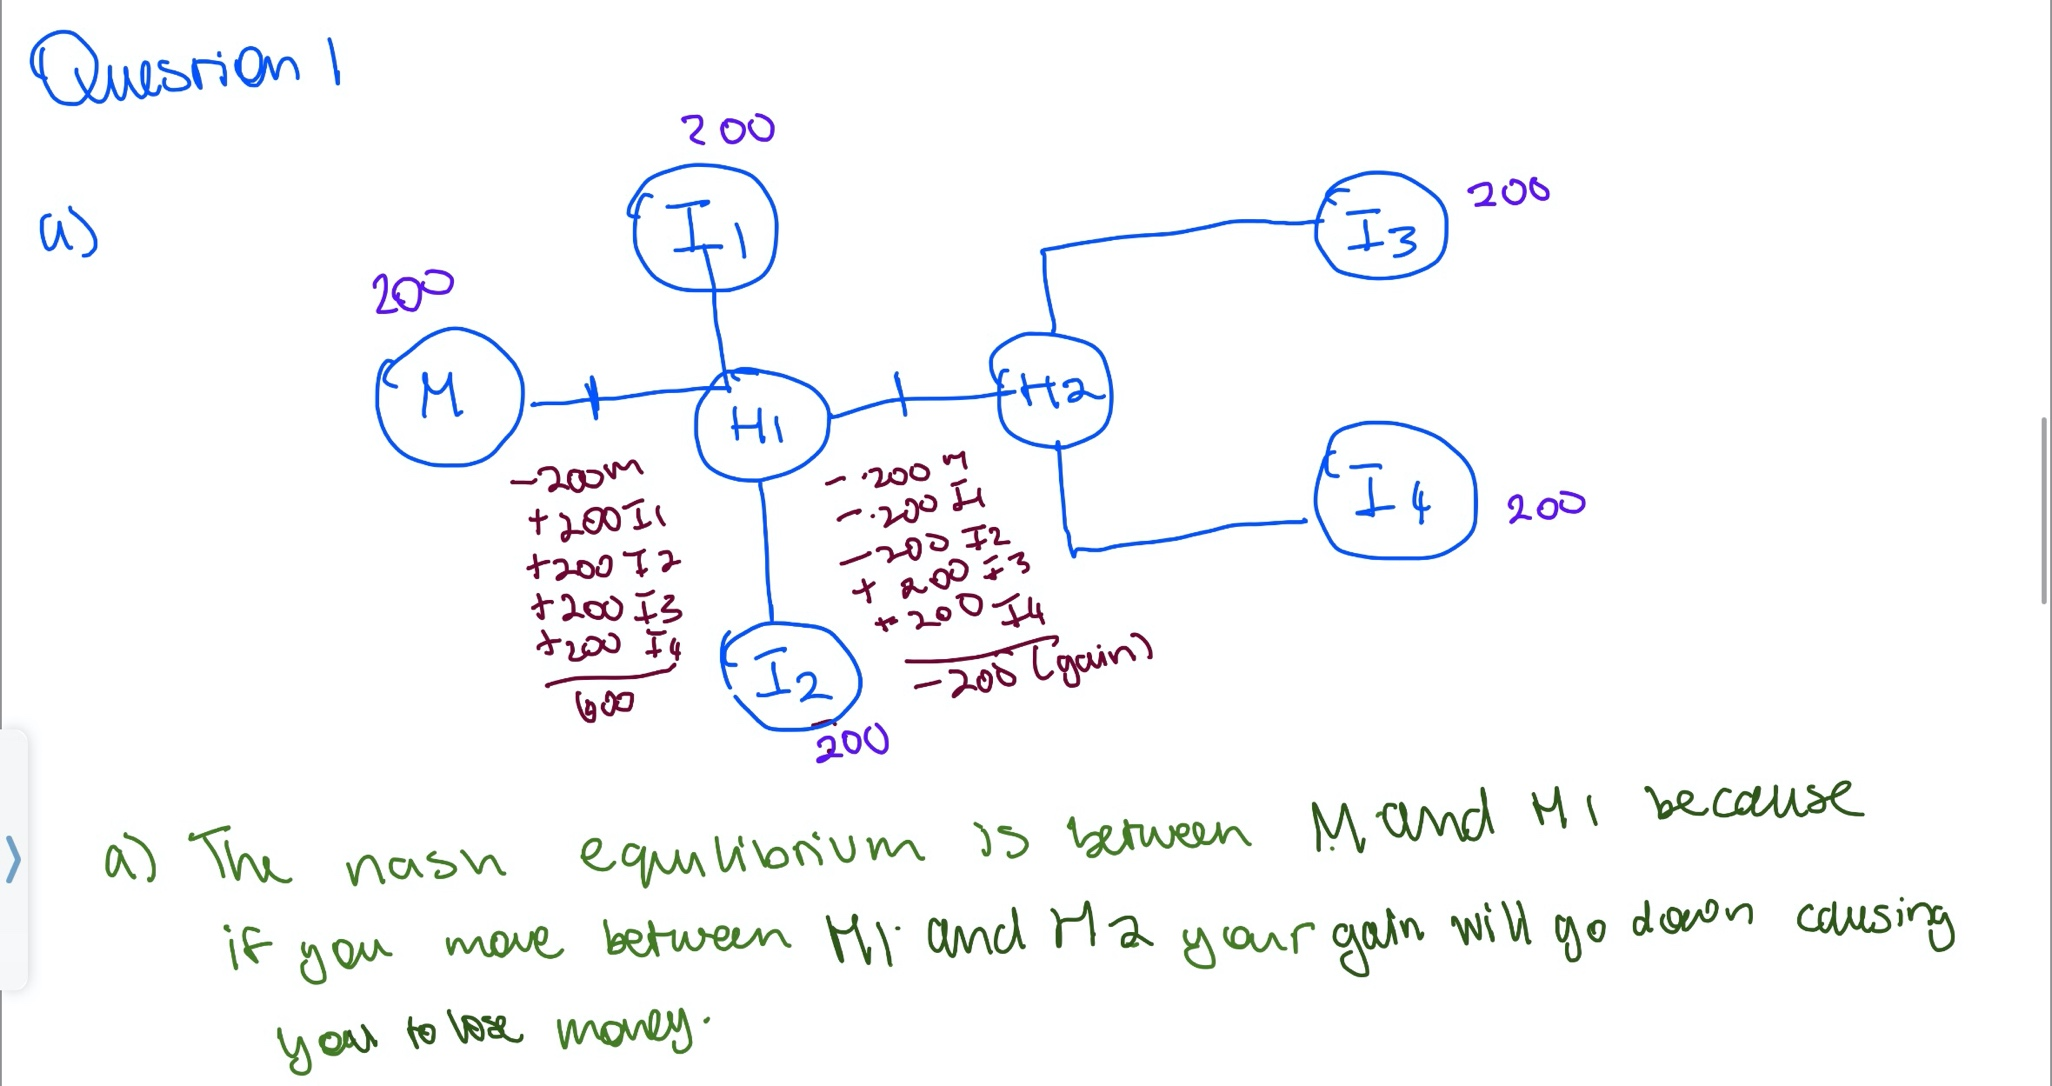 Quesrion 1
200
a)
I1
200
I3
200
M
H1
H2
I4
200
-200m
+200 I1
+200 I2
+200 I3
+200 I4
600
- 200 M
- 200 I1
-200 I2
+ 200 I3
+ 200 I4
-200 (gain)
I2
200
a) The nash equilibrium is between M and H1 because
if you move between H1 and H2 your gain will go down causing
you to lose money.